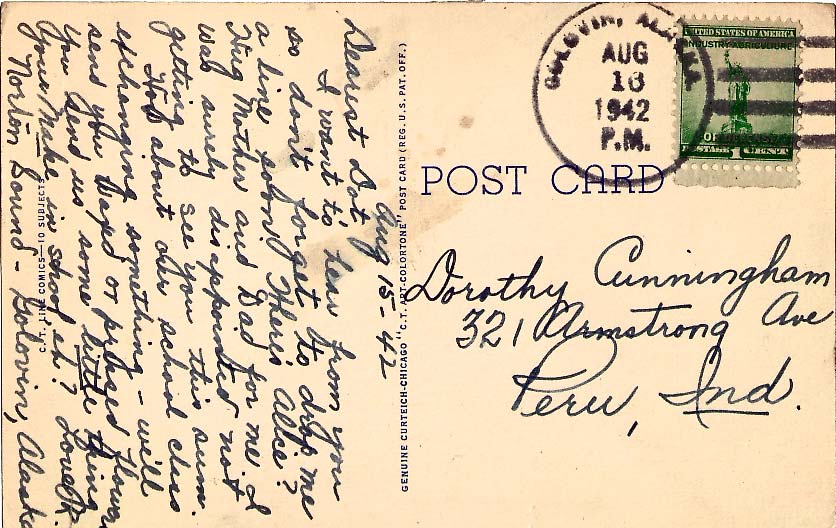 Aug 15-42
Dearest Dot,
I want to hear from you
so don't forget to drop me
a line soon. There's Alice?
Hug Mother and Dad for me I
was surely disappointed not
getting to see you this sum.
How about our school class
exchanging something - we'll
send you waxed or pressed flower
You send us some little thing
you make in school et? Love R.
Norton Sound - Golovin, Alaska
C.T. LINE COMICS—10 SUBJECTS
GENUINE CURTEICH-CHICAGO "C.T. ART-COLORTONE" POST CARD (REG. U.S. PAT. OFF.)
GOLOVIN, ALASKA
AUG
1942
P.M.
UNITED STATES OF AMERICA
INDUSTRY AGRICULTURE
POSTAGE 1 CENT
POST CARD
Dorothy Cunningham
321 Armstrong Ave
Peru, Ind.